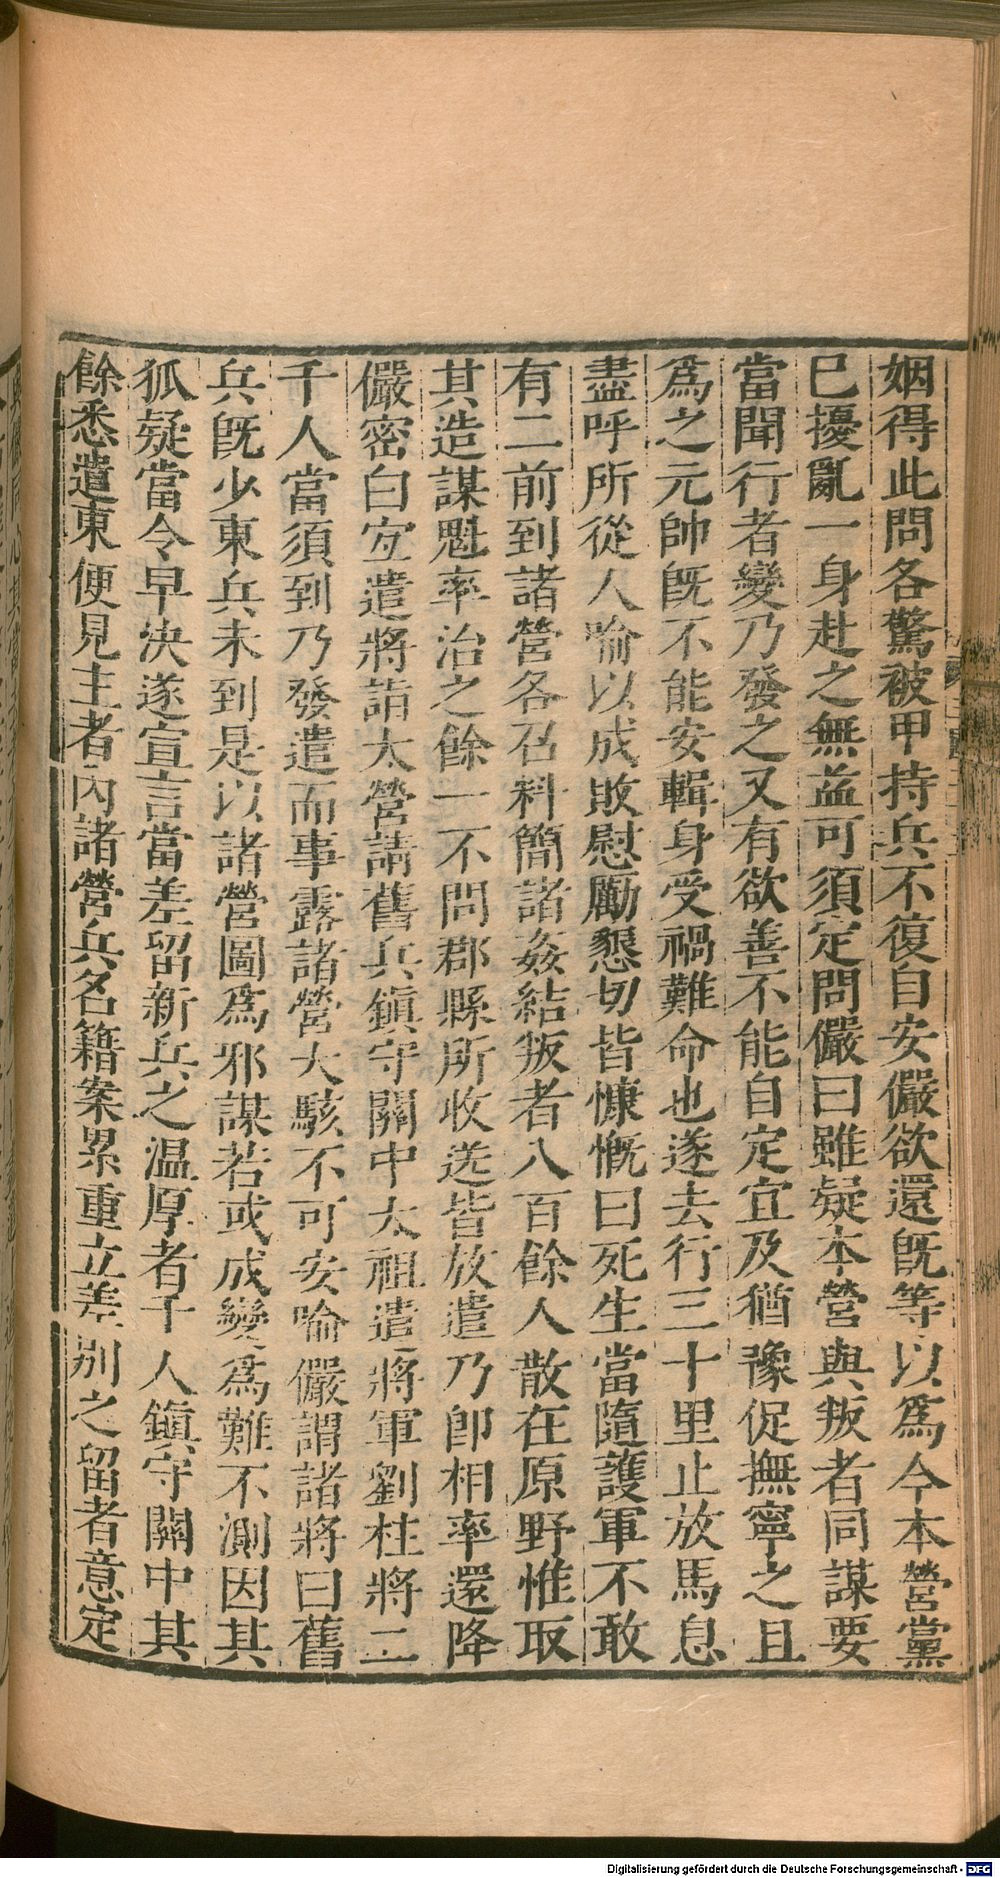 姻得此問各驚被甲持兵不復自安儼欲還旣等以爲今本營黨
巳擾亂一身赴之無益可須定問儼曰雖疑本營與叛者同謀要
當聞行者變乃發之又有欲善不能自定宜及猶豫促撫寧之且
爲之元帥旣不能安輯身受禍難命也遂去行三十里止放馬息
盡呼所從人喻以成敗慰勵懇切皆慷慨曰死生當隨護軍不敢
有二前到諸營各召料簡諸姦結叛者八百餘人散在原野惟取
其造謀魁率治之餘一不問郡縣所收送皆放遣乃卽相率還降
儼密白宜遣將詣大營請舊兵鎭守關中太祖遣將軍劉柱將二
千人當須到乃發遣而事露諸營大駭不可安喻儼謂諸將曰舊
兵旣少東兵未到是以諸營圖爲邪謀若或成變爲難不測因其
狐疑當令早決遂宣言當差留新兵之温厚者千人鎭守關中其
餘悉遣東便見主者內諸營兵名籍案累重立差別之留者意定
Digitalisierung gefördert durch die Deutsche Forschungsgemeinschaft - DFG